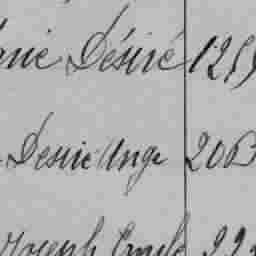 Désiré 12
Desiré Ange 206
Joseph Emile 22